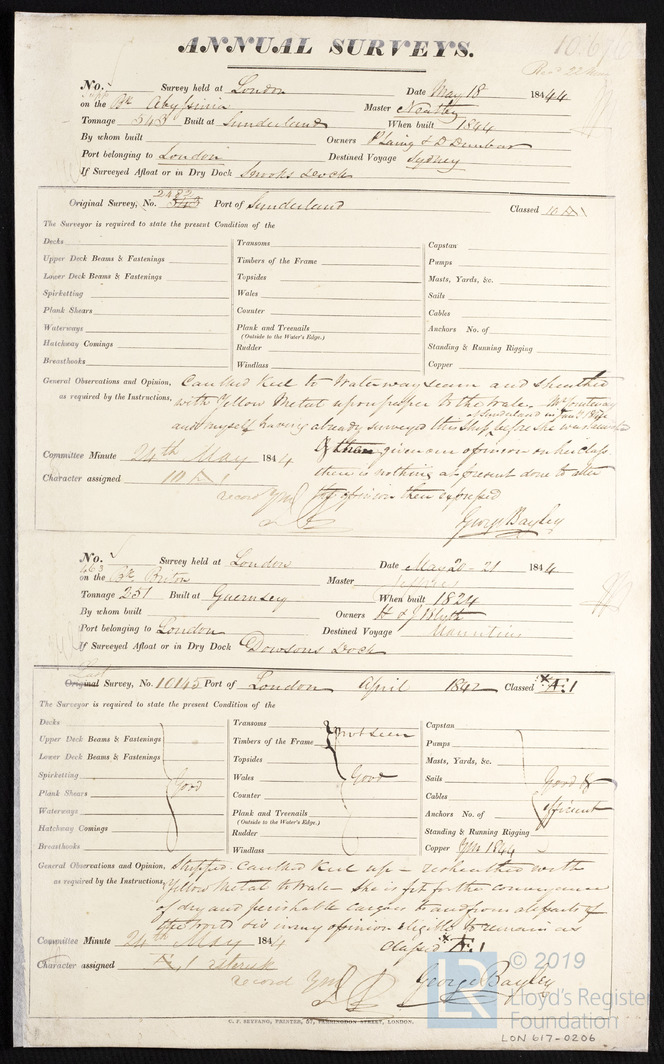 ANNUAL SURVEYS.
No. Survey held at London Date May 18 1844
on the Bk Abyssinia Master
Tonnage 543 Built at Sunderland When built 1844
By whom built Owners P Laing & D Dunbar
Port belonging to London Destined Voyage Sydney
If Surveyed Afloat or in Dry Dock Dock
Original Survey, No. 2482 Port of Sunderland Classed 10 A 1
The Surveyor is required to state the present Condition of the
Decks Transoms Capstan
Upper Deck Beams & Fastenings Timbers of the Frame Pumps
Lower Deck Beams & Fastenings Topsides Masts, Yards, &c.
Spirketting Wales Sails
Plank Shears Counter Cables
Waterways Plank and Treenails Anchors No. of
(Outside to the Water's Edge.)
Hatchway Comings Rudder Standing & Running Rigging
Breasthooks Windlass Copper
General Observations and Opinion, Caulked Keel to Waterwayseam and sheathed
as required by the Instructions, with Yellow Metal upon paper to the Wales.
at Sunderland in
and myself having already surveyed this ship before she was
given our opinion on her class
Committee Minute 24th May 1844 there is nothing at present done to alter
Character assigned 10 A 1 the opinion then expressed
record YM
George Bayley
No. Survey held at London Date May 20-21 1844
on the Bk Briton Master Jeffries
Tonnage 251 Built at Guernsey When built 1824
By whom built Owners H & J Blyth
Port belonging to London Destined Voyage Mauritius
If Surveyed Afloat or in Dry Dock Dowsons Dock
Last
Original Survey, No. 10145 Port of London April 1842 Classed *Æ 1
The Surveyor is required to state the present Condition of the
Decks Transoms not seen Capstan
Upper Deck Beams & Fastenings Timbers of the Frame Pumps
Lower Deck Beams & Fastenings Topsides Masts, Yards, &c.
Spirketting Good Wales Good Sails Good &
Plank Shears Counter Cables efficient
Waterways Plank and Treenails Anchors No. of
(Outside to the Water's Edge.)
Hatchway Comings Rudder Standing & Running Rigging
Breasthooks Windlass Copper YM 1844
General Observations and Opinion, Stripped. Caulked Keel up - resheathed with
as required by the Instructions, Yellow Metal to Wale - She is fit for the conveyance
of dry and perishable cargoes to and from all parts of
the World & is in my opinion eligible to remain as
Committee Minute 24th May 1844 classed *Æ 1
Character assigned Æ 1 asterisk
record YM
George Bayley
C. F. SEYFANG, PRINTER, 57, FARRINGDON STREET, LONDON.
LR
© 2019
Lloyd's Register
Foundation
LON 617-0206